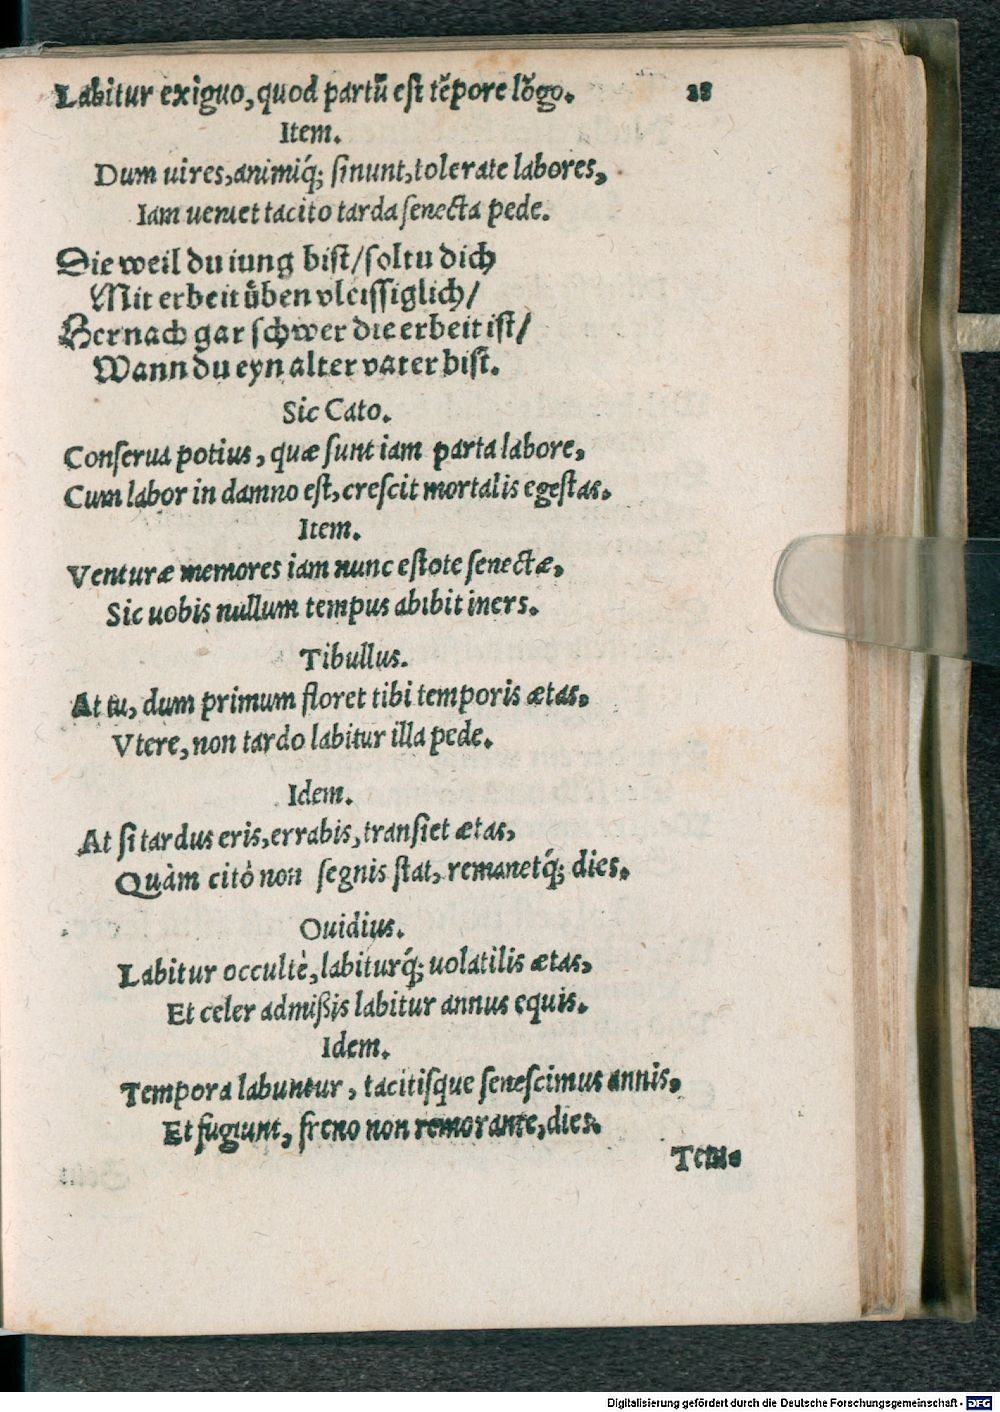 Labitur exiguo, quod partũ est tẽpore lõgo. 28
Item.
Dum uires, animiq́; ſinunt, tolerate labores,
Iam ueniet tacito tarda ſenecta pede.
Die weil du iung biſt/ ſoltu dich
Mit erbeit uͤben vleiſſiglich/
Hernach gar ſchwer die erbeit iſt/
Wann du eyn alter vater biſt.
Sic Cato.
Conſerua potius, quæ ſunt iam parta labore,
Cum labor in damno eſt, creſcit mortalis egeſtas.
Item.
Venturæ memores iam nunc eſtote ſenectæ,
Sic uobis nullum tempus abibit iners.
Tibullus.
At tu, dum primum floret tibi temporis ætas,
Vtere, non tardo labitur illa pede.
Idem.
At ſi tardus eris, errabis, tranſiet ætas,
Quàm citò non ſegnis ſtat, remanetq́; dies.
Ouidius.
Labitur occultè, labiturq́; uolatilis ætas,
Et celer admißis labitur annus equis.
Idem.
Tempora labuntur, tacitiſque ſeneſcimus annis,
Et fugiunt, freno non remorante, dies.
Tem-
Digitalisierung gefördert durch die Deutsche Forschungsgemeinschaft - DFG